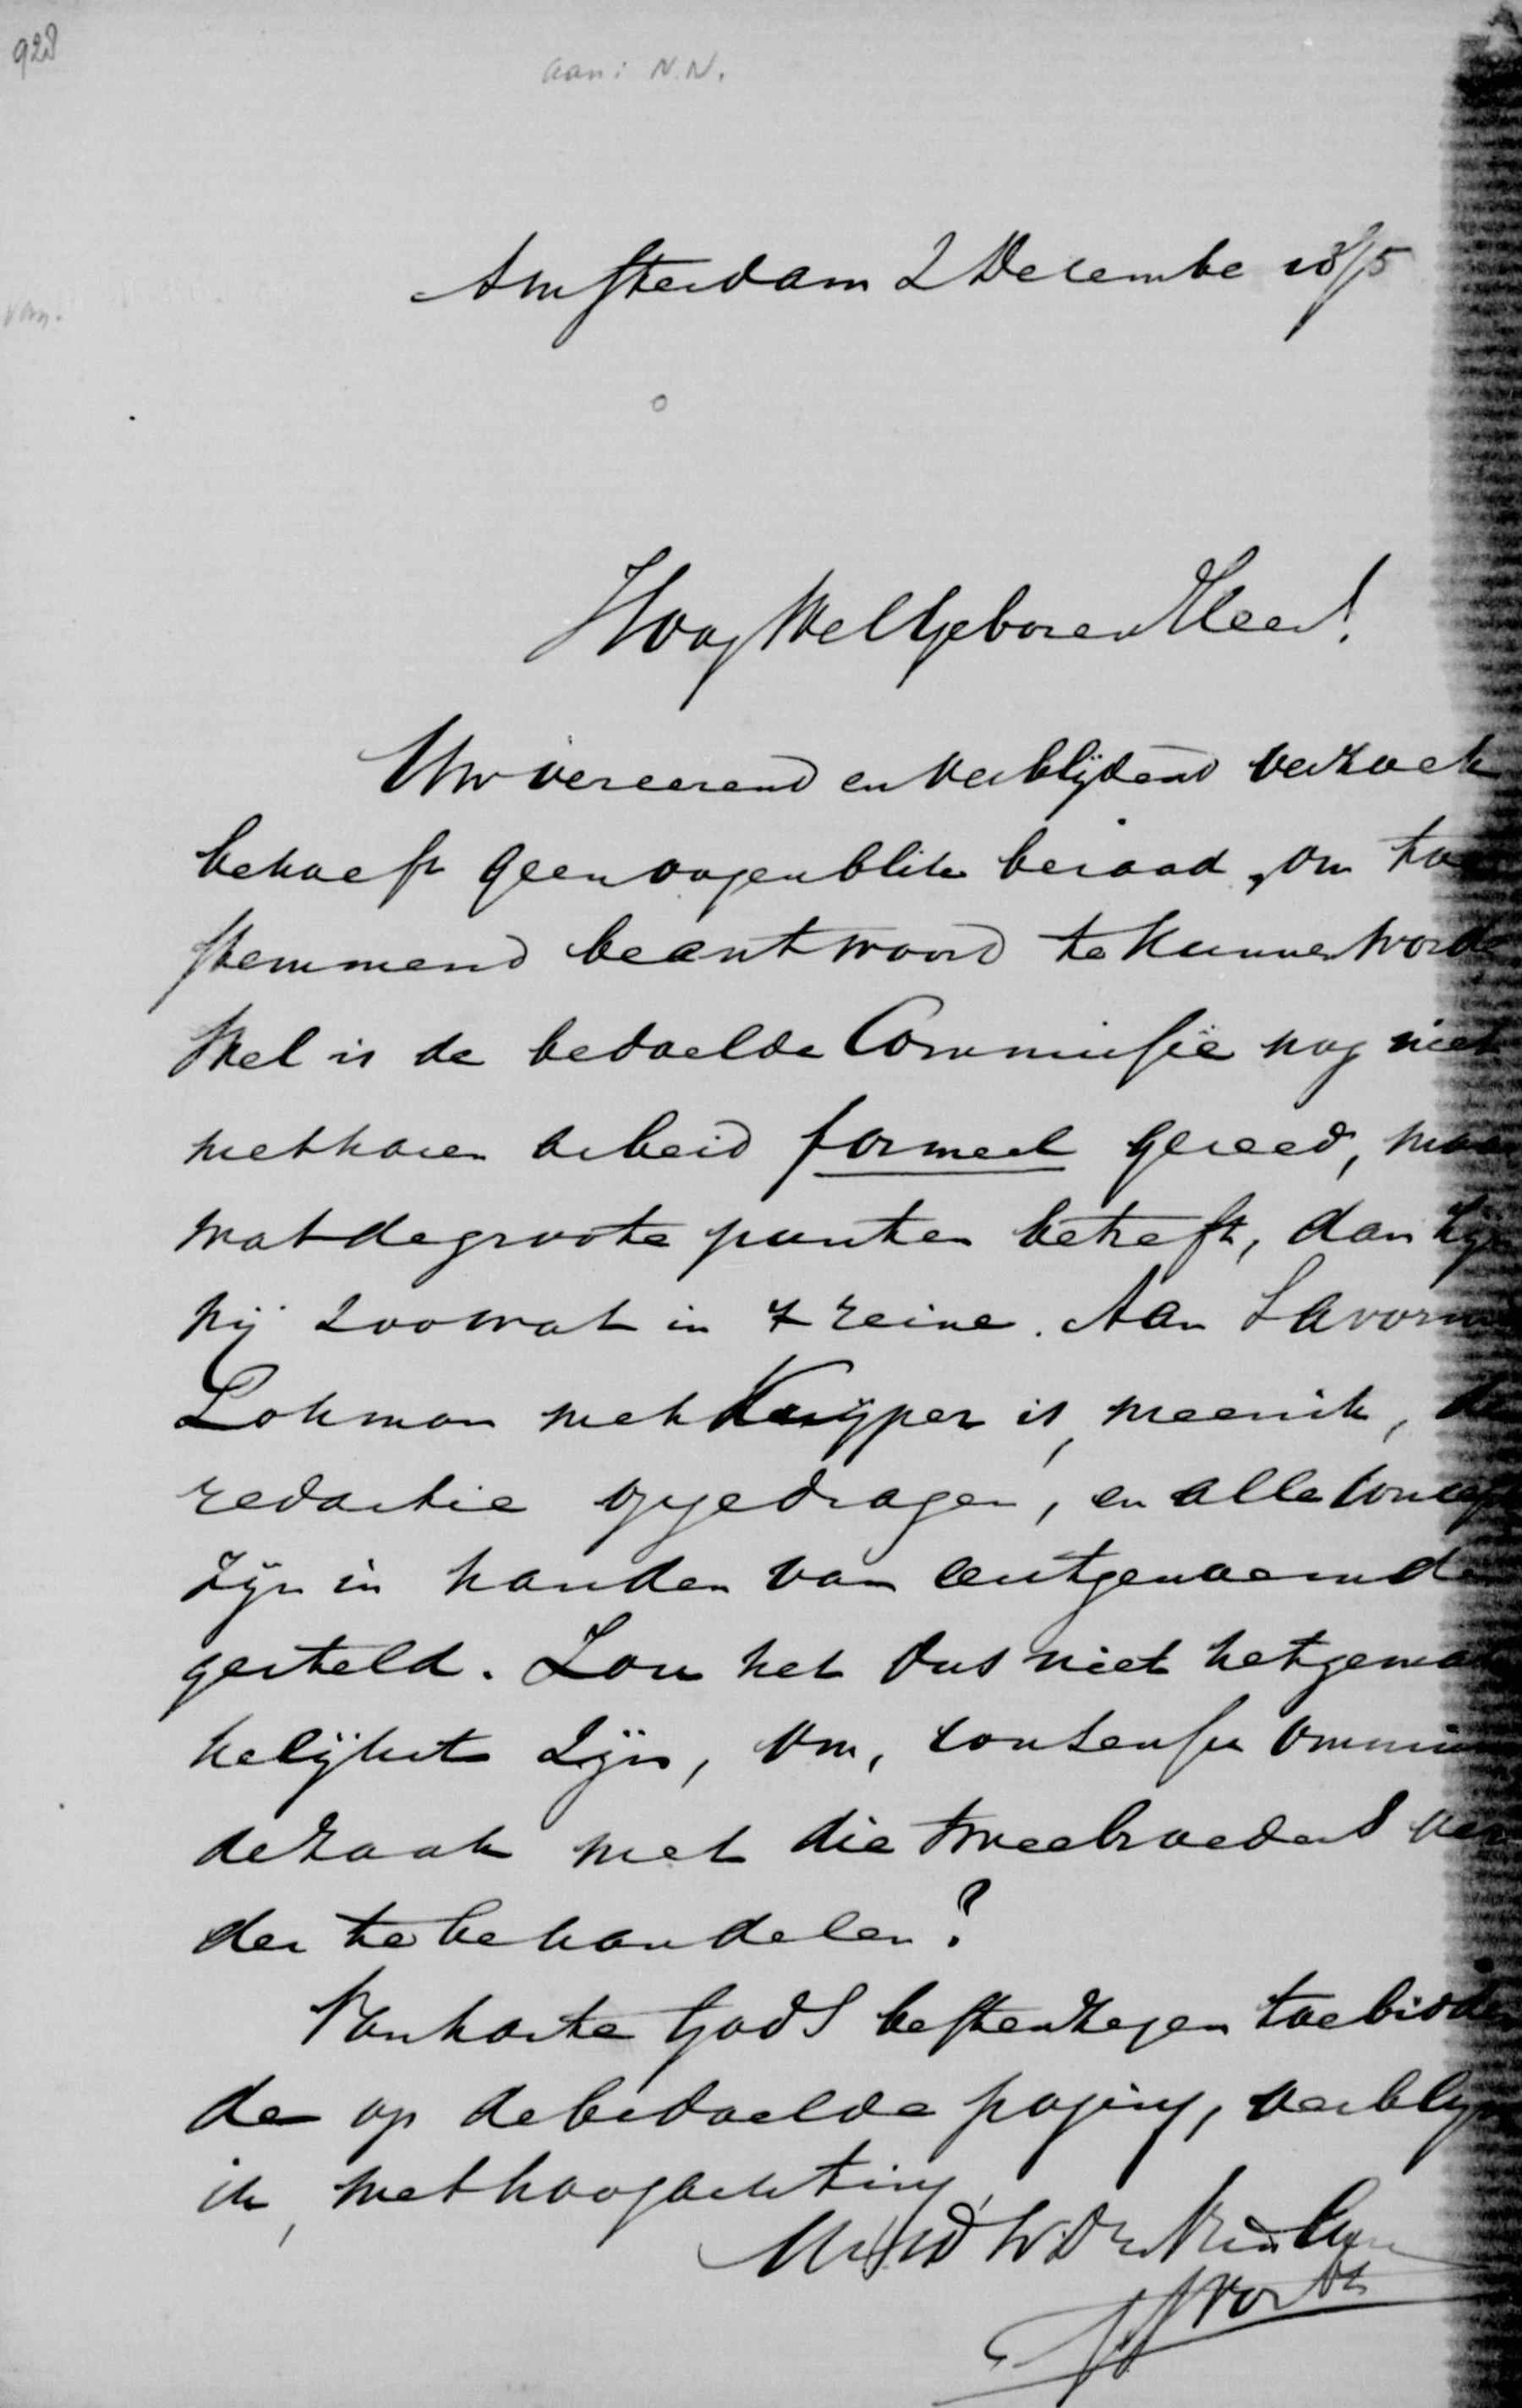 928
aan: N.N.
Amsterdam 2 Decembe 1875
van.
HoogWelGeboren Heer!
Uw vereerend en verblijdend verzoek
behoeft geen oogenblik beraad, om toe
stemmend beantwoord te kunnen worde
Wel is de bedoelde Commissie nog niet
met haren arbeid formeel gereed, maa
wat de groote punten betreft, dan zijn
wij zoowat in 't reine. Aan Savornin
Lohman met Kuijper is, meen ik, de
redactie opgedragen, en alle concept
zijn in handen van eerstgenoemde
gesteld. Zou het dus niet het gemak
kelijkst zijn, om, consensu omnium
de zaak met die twee broeders ver
der te behandelen?
Van harte Gods besten zegen toebidden
de op de bedoelde poging, verblijf
ik, met hoogachting,
UwHWGb Dr en Vriend